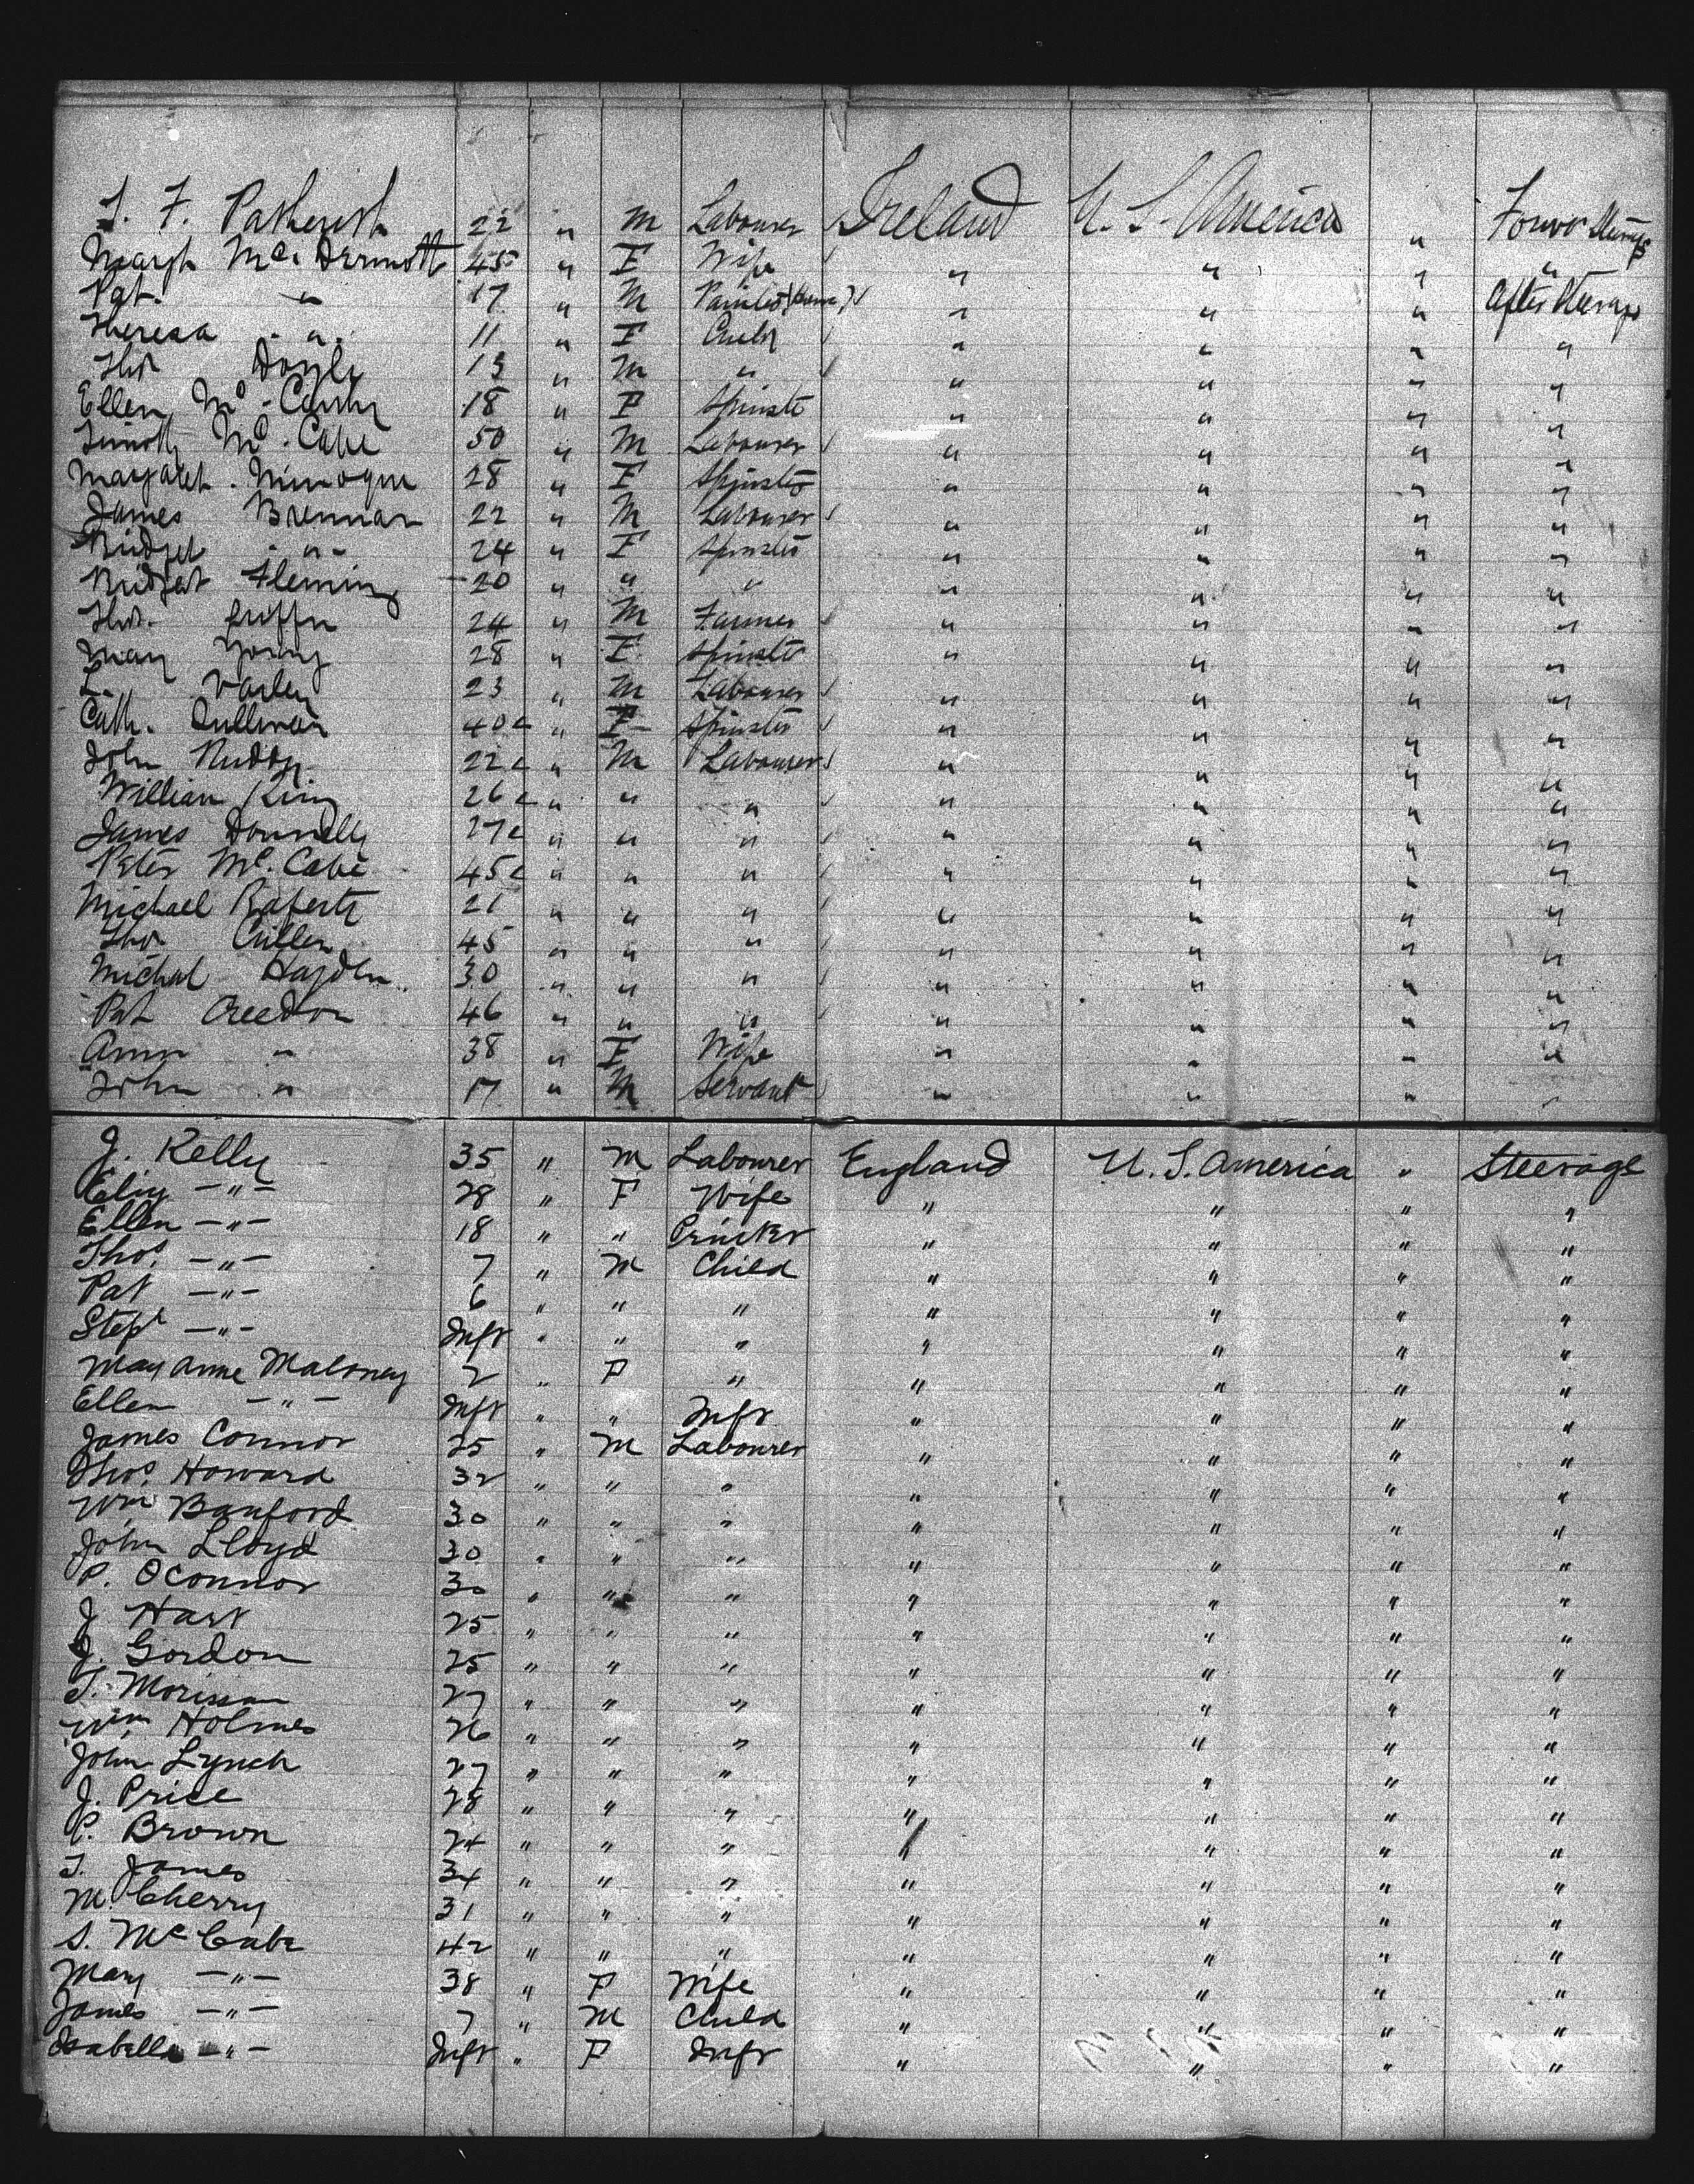 22 " M Labourer Ireland U. S. America "
Margt Mc. Dermott 45 " F Wife " " " "
Pat. " 17 " M " " " After Steerage
Theresa " 11 " F Child " " " "
Thos Doyle 13 " M " " " " "
Ellen Mc. 18 " F Spinster " " " "
Timothy Mc. Cabe 50 " M Labourer " " " "
Margaret Minogue 28 " F Spinster " " " "
James Brennan 22 " M Labourer " " " "
Bridget " 24 " F Spinster " " " "
Bridget Fleming 20 " " " " " " "
Thos. Griffin 24 " M Farmer " " " "
Mary Young 28 " F Spinster " " " "
Varley 23 " M Labourer " " " "
Cath. Sullivan 40 " F Spinster " " " "
John Ruddy 22 " M Labourer " " " "
William King 26 " " " " " " "
James Donnelly 27 " " " " " " "
Peter Mc. Cabe 45 " " " " " " "
Michael Raferty 21 " " " " " " "
Thos Cullen 45 " " " " " " "
Michael Hayden 30 " " " " " " "
Pat Creedon 46 " " " " " " "
Ann " 38 " F Wife " " " "
John " 17 " M Servant " " " "
J. Kelly 35 " M Labourer England U. S. America " Steerage
Eliz -"- 28 " F Wife " " " "
Ellen -"- 18 " " " " " "
Thos. -"- 7 " M Child " " " "
Pat -"- 6 " " " " " " "
Steph -"- Inft " " " " " " "
Mary Anne Maloney 2 " F " " " " "
Ellen -"- Inft " " Inft " " " "
James Connor 25 " M Labourer " " " "
Thos. Howard 32 " " " " " " "
Wm Banford 30 " " " " " " "
John Lloyd 30 " " " " " " "
P. OConnor 30 " " " " " " "
J Hart 25 " " " " " " "
J. Gordon 25 " " " " " " "
T. Morisson 27 " " " " " " "
Wm Holmes 26 " " " " " " "
John Lynch 27 " " " " " " "
J. Price 28 " " " " " " "
P. Brown 24 " " " " " " "
T. James 34 " " " " " " "
M. Cherry 31 " " " " " " "
S. McCabe 42 " " " " " " "
Mary -"- 38 " F Wife " " " "
James -"- 7 " M Child " " " "
Isabella -"- Inft " F Inft " " " "